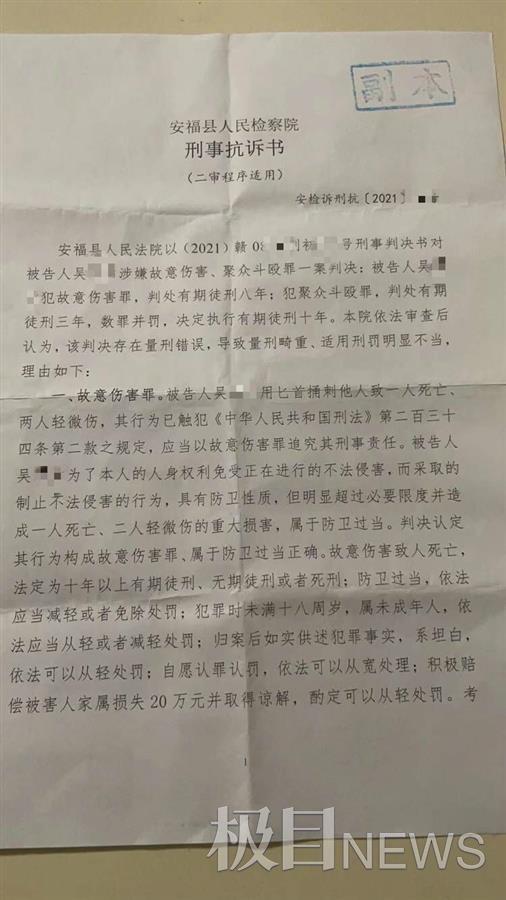 副本
安福县人民检察院
刑事抗诉书
（二审程序适用）
安检诉刑抗〔2021〕
安福县人民法院以（2021）赣08 刑初 号刑事判决书对
被告人吴 涉嫌故意伤害、聚众斗殴罪一案判决：被告人吴
犯故意伤害罪，判处有期徒刑八年；犯聚众斗殴罪，判处有期
徒刑三年，数罪并罚，决定执行有期徒刑十年。本院依法审查后
认为，该判决存在量刑错误，导致量刑畸重、适用刑罚明显不当，
理由如下：
一、故意伤害罪。被告人吴 用匕首捅刺他人致一人死亡、
两人轻微伤，其行为已触犯《中华人民共和国刑法》第二百三十
四条第二款之规定，应当以故意伤害罪追究其刑事责任。被告人
吴 为了本人的人身权利免受正在进行的不法侵害，而采取的
制止不法侵害的行为，具有防卫性质，但明显超过必要限度并造
成一人死亡、二人轻微伤的重大损害，属于防卫过当。判决认定
其行为构成故意伤害罪、属于防卫过当正确。故意伤害致人死亡，
法定为十年以上有期徒刑、无期徒刑或者死刑；防卫过当，依法
应当减轻或者免除处罚；犯罪时未满十八周岁，属未成年人，依
法应当从轻或者减轻处罚；归案后如实供述犯罪事实，系坦白，
依法可以从轻处罚；自愿认罪认罚，依法可以从宽处理；积极赔
偿被害人家属损失20万元并取得谅解，酌定可以从轻处罚。考
1
极目NEWS